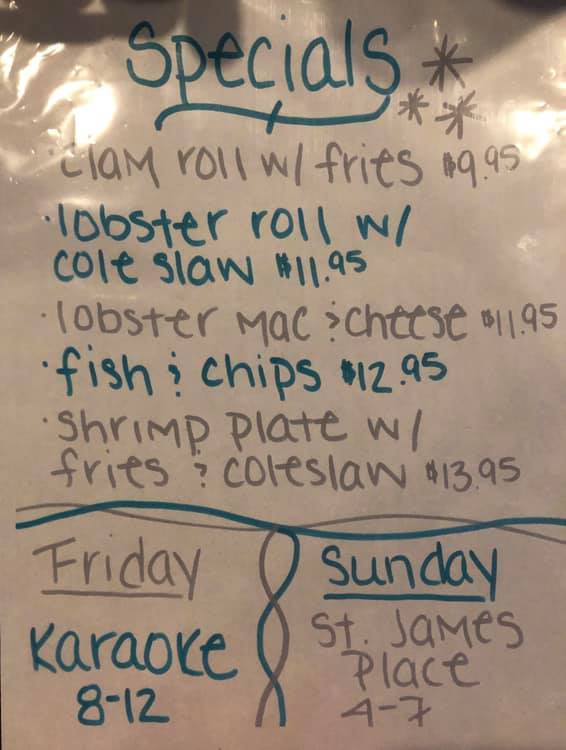 Specials
· Clam roll w/ fries $9.95
· lobster roll w/
cole slaw $11.95
· lobster mac & cheese $11.95
· fish & chips $12.95
· shrimp plate w/
fries & coleslaw $13.95
Friday
Karaoke
8-12
Sunday
St. James
Place
4-7